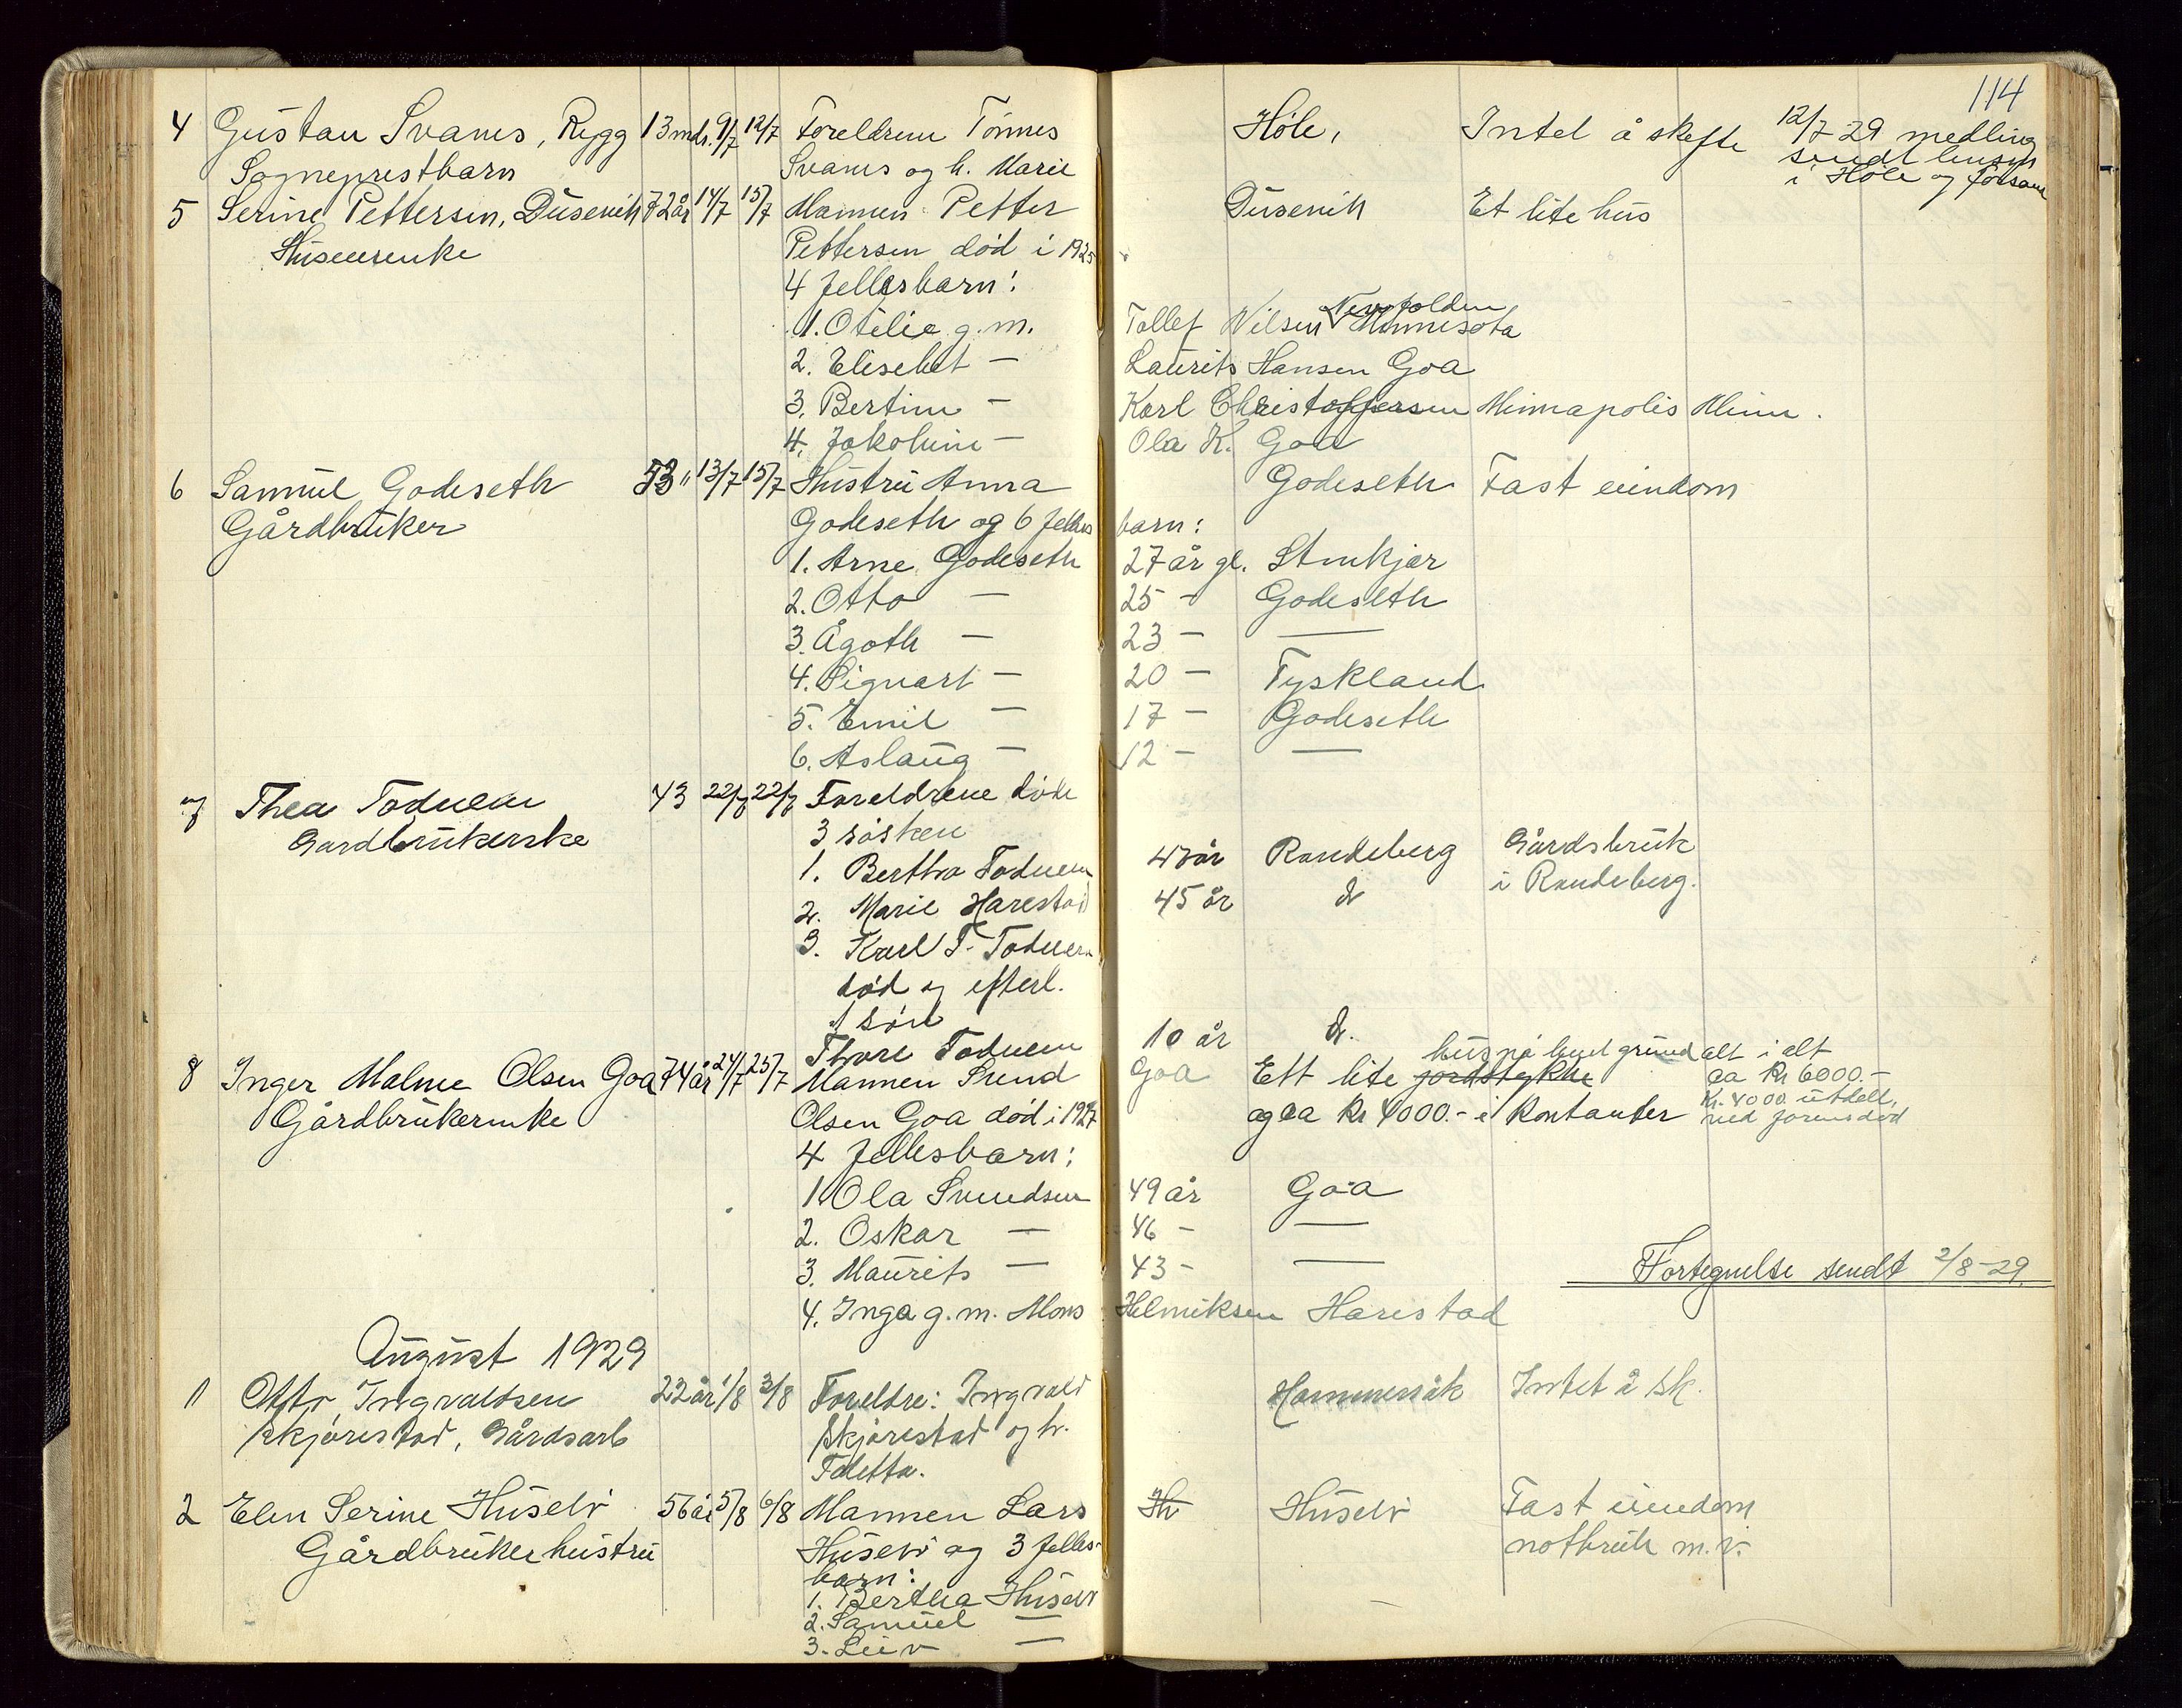 114
4 Gustav Svanes, Rygg 13 mdr. 9/7 12/7 Foreldrene Tönnes Höle, Intet å skifte 12/7 29 melding
Sogneprestbarn Svanes og h. Marie sendt lensm
i Höle og Forsand
5 Serine Pettersen, Dusevik 72 år 14/7 15/7 Mannen Petter Dusevik Et lite hus
Husmerenke Pettersen död i 1925
4 fellesbarn:
1. Otilie g. m. Tollef Nilsen Newfolden Minnesota
2. Elisebet — Laurits Hansen Goa
3. Bertine — Karl Christoffersen Minnapolis Minn.
4. Jakobine — Ola K. Goa
6 Samuel Godeseth 53 " 13/7 15/7 Hustru Anna Godeseth Fast eiendom
Gårdbruker Godeseth og 6 felles barn:
1. Arne Godeseth 27 år gl. Stenkjær
2. Otto — 25 — Godeseth
3. Ågoth — 23 — —
4. Sigvart — 20 — Tyskland
5. Emil — 17 — Godeseth
6. Aslaug — 12 — —
7 Thea Todnem 43 22/7 22/7 Foreldrene döde
Gardbrukerske 3 sösken
1. Bertha Todnem 47 år Randeberg Gårdsbruk
2. Marie Harestad 45 år d i Randeberg.
3. Karl T. Todnem
död og efterl.
1 sön
Thore Todnem 10 år d.
8 Inger Malene Olsen Goa 74 år 24/7 25/7 Mannen Svend Goa Ett lite jordstykke hus på leiet grund alt i alt
ca Kr 6000.-
Gårdbrukerenke Olsen Goa död i 1927 og ca Kr 4000.- i kontanter Kr. 4000 utdelt
ved farens död
4 fellesbarn:
1. Ola Svendsen 49 år Goa
2. Oskar — 46 — —
3. Maurits — 43 — —
Fortegnelse sendt 2/8-29.
4. Inga g. m. Mons Helmiksen Harestad
August 1929
1 Otto Ingvaldsen 22 år 1/8 3/8 Foreldre: Ingvald Hommersåk Intet å sk.
Skjörestad, Gårdsarb Skjörestad og h.
Taletta.
2 Elen Serine Husebö 56 år 5/8 6/8 Mannen Lars Husebö Fast eiendom
Gårdbrukerhustru Husebö og 3 felles- notbruk m. v.
barn:
1. Bertha Husebö
2. Samuel —
3. Leiv —